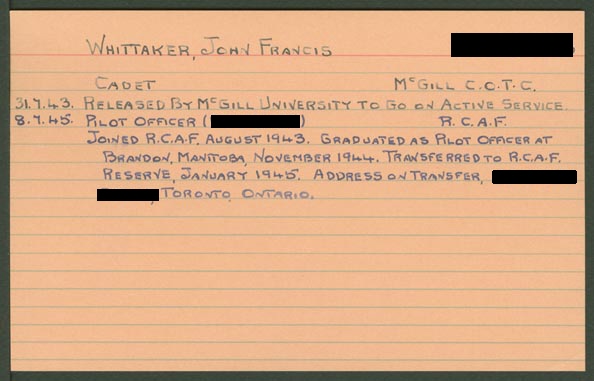 WHITTAKER, JOHN FRANCIS
CADET McGILL C.O.T.C.
31.7.43. RELEASED BY McGILL UNIVERSITY TO GO ON ACTIVE SERVICE.
8.7.45. PILOT OFFICER ( ) R.C.A.F.
JOINED R.C.A.F. AUGUST 1943. GRADUATED AS PILOT OFFICER AT
BRANDON, MANITOBA, NOVEMBER 1944. TRANSFERRED TO R.C.A.F.
RESERVE, JANUARY 1945. ADDRESS ON TRANSFER,
, TORONTO, ONTARIO.